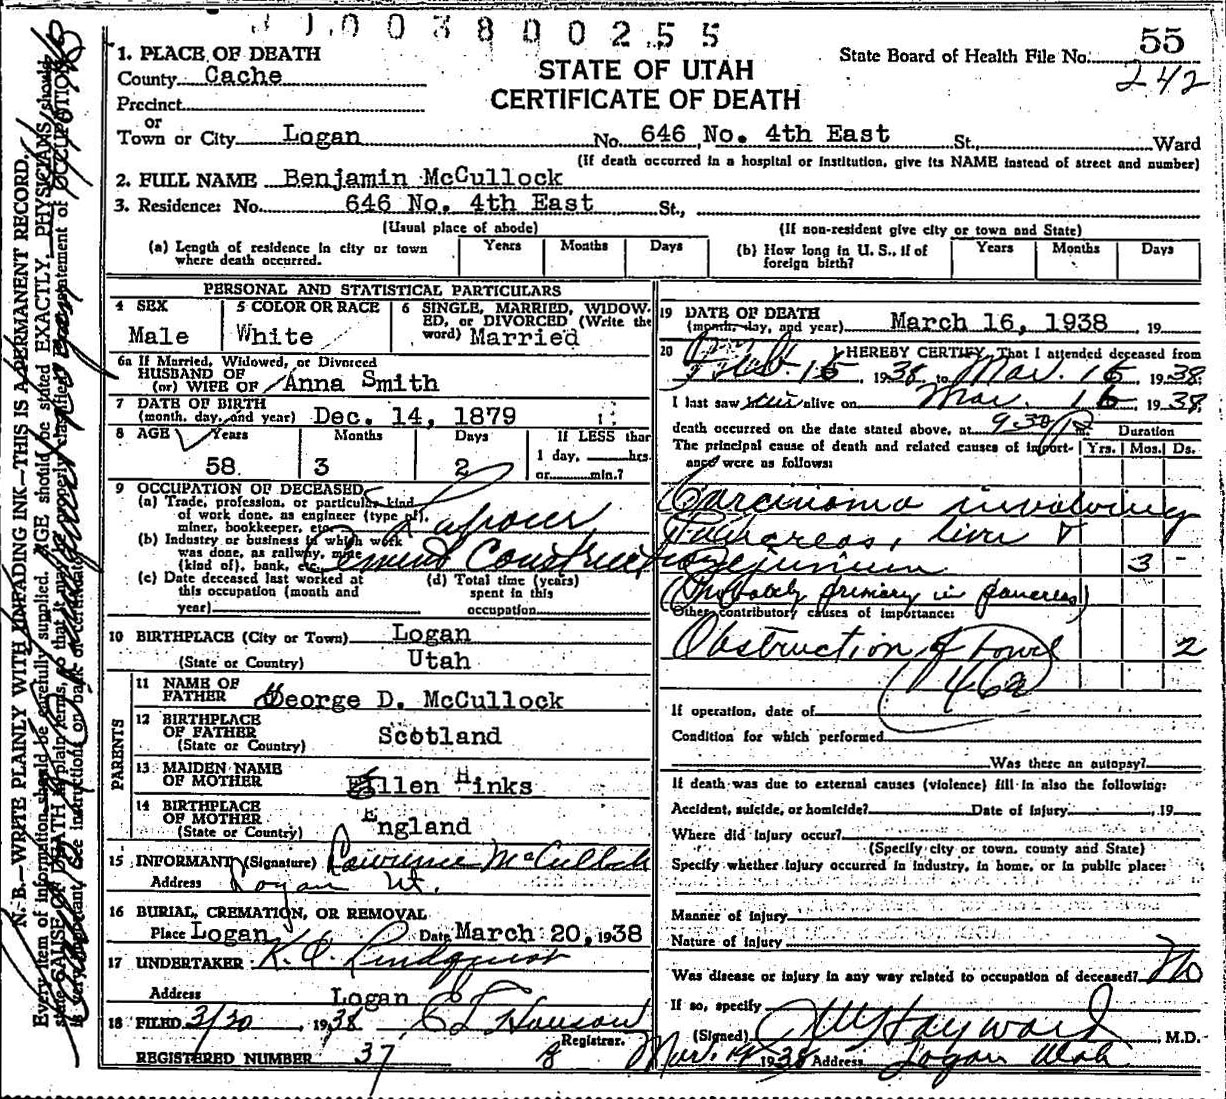 003800255
1. PLACE OF DEATH
County Cache
STATE OF UTAH
CERTIFICATE OF DEATH
State Board of Health File No. 55
242
Precinct
or
Town or City Logan No. 646 No. 4th East St., Ward
(If death occurred in a hospital or institution, give its NAME instead of street and number)
2. FULL NAME Benjamin McCullock
3. Residence: No. 646 No. 4th East St.,
(Usual place of abode) (If non-resident give city or town and State)
(a) Length of residence in city or town where death occurred. Years Months Days (b) How long in U. S., if of foreign birth? Years Months Days
PERSONAL AND STATISTICAL PARTICULARS
4 SEX Male
5 COLOR OR RACE White
6 SINGLE, MARRIED, WIDOW-
ED, or DIVORCED (Write the
word) Married
6a If Married, Widowed, or Divorced
HUSBAND OF
(or) WIFE OF Anna Smith
7 DATE OF BIRTH
(month, day, and year) Dec. 14, 1879
8 AGE Years Months Days If LESS than
58 3 2 1 day, hrs.
or min.?
9 OCCUPATION OF DECEASED
(a) Trade, profession, or particular kind
of work done, as engineer (type of),
miner, bookkeeper, etc. Laborer
(b) Industry or business in which work
was done, as railway, mine
(kind of), bank, etc. Cement Construction
(c) Date deceased last worked at
this occupation (month and
year)
(d) Total time (years)
spent in this
occupation
10 BIRTHPLACE (City or Town) Logan
(State or Country) Utah
PARENTS
11 NAME OF
FATHER George D. McCullock
12 BIRTHPLACE
OF FATHER
(State or Country) Scotland
13 MAIDEN NAME
OF MOTHER Ellen Hinks
14 BIRTHPLACE
OF MOTHER
(State or Country) England
15 INFORMANT (Signature) Lawrence McCullock
Address Logan Ut.
16 BURIAL, CREMATION, OR REMOVAL
Place Logan Date March 20, 1938
17 UNDERTAKER Lindquist
Address Logan
18 FILED 3/20, 1938 Hanson
Registrar.
REGISTERED NUMBER 37
19 DATE OF DEATH
(month, day, and year) March 16, 1938, 19
20 I HEREBY CERTIFY, That I attended deceased from
Feb. 15, 1938 to Mar. 16, 1938
I last saw him alive on Mar. 16, 1938
death occurred on the date stated above, at 9:30 P m. Duration
The principal cause of death and related causes of import-
ance were as follows: Yrs. Mos. Ds.
Carcinoma involving
Pancreas, liver &
jejunum 3 -
(Probably primary in pancreas)
Other contributory causes of importance:
Obstruction of bowel 2
46
If operation, date of
Condition for which performed
Was there an autopsy?
If death was due to external causes (violence) fill in also the following:
Accident, suicide, or homicide? Date of Injury , 19
Where did injury occur?
(Specify city or town, county and State)
Specify whether injury occurred in industry, in home, or in public place:
Manner of injury
Nature of injury
Was disease or injury in any way related to occupation of deceased? No
If so, specify
(Signed) Hayward, M.D.
Mar. 1938 Address Logan Utah
N. B.—WRITE PLAINLY WITH UNFADING INK—THIS IS A PERMANENT RECORD.
Every item of information should be carefully supplied. AGE should be stated EXACTLY. PHYSICIANS should
state CAUSE OF DEATH in plain terms, so that it may be properly classified. Exact statement of OCCUPATION
is very important. See instructions on back of certificate.